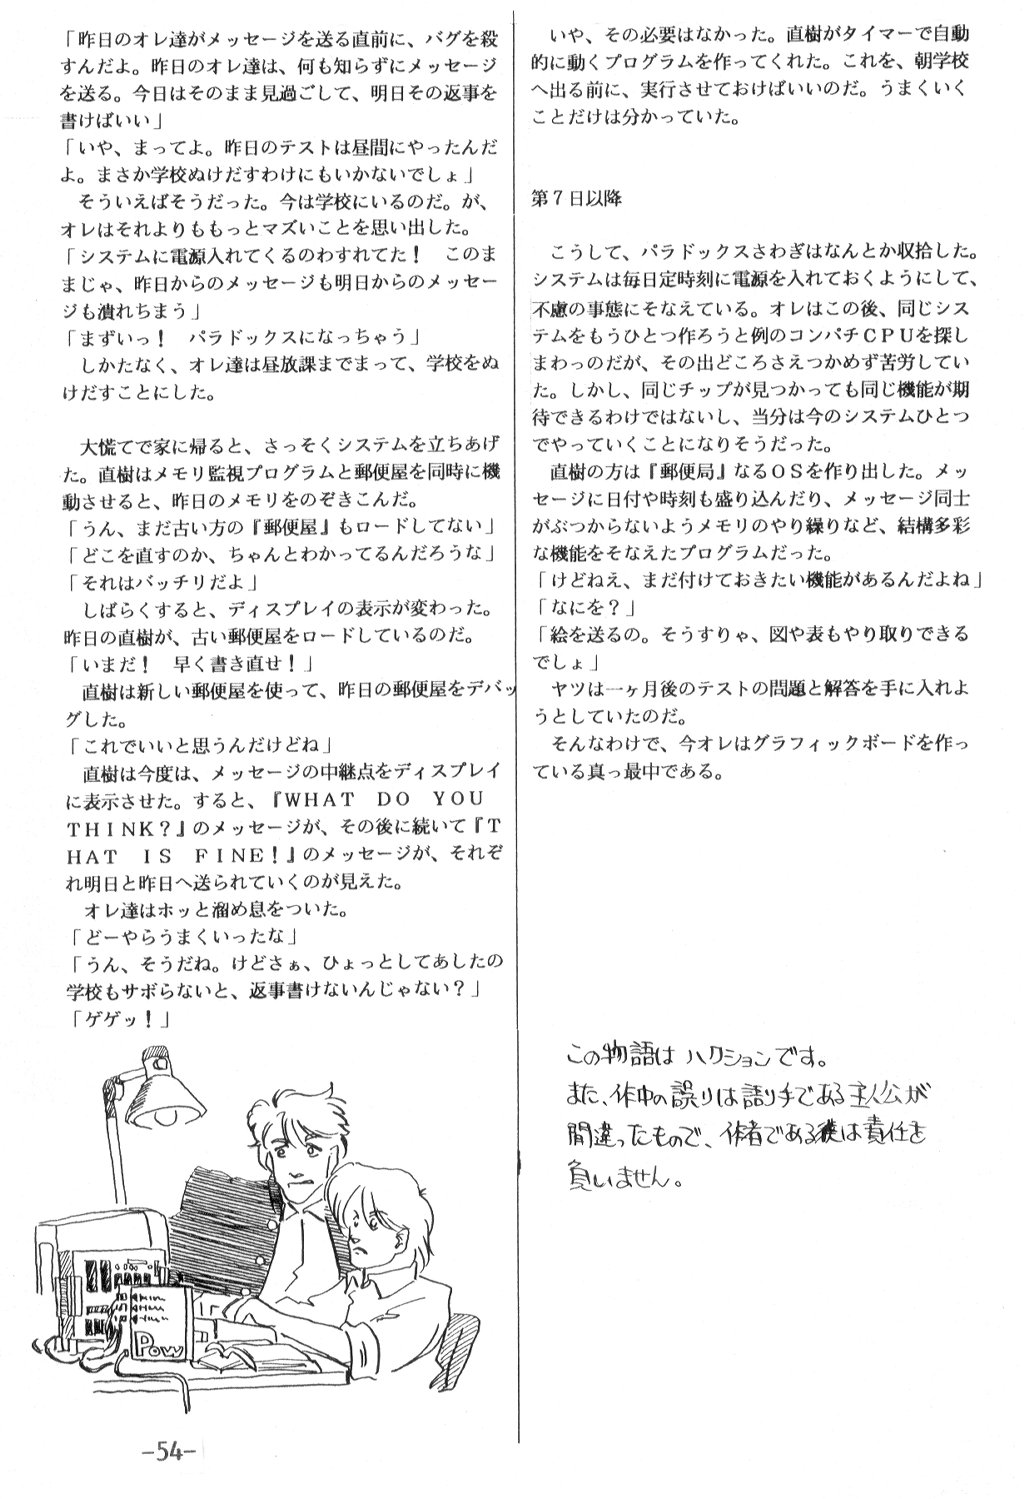 「昨日のオレ達がメッセージを送る直前に、バグを殺
すんだよ。昨日のオレ達は、何も知らずにメッセージ
を送る。今日はそのまま見過ごして、明日その返事を
書けばいい」
「いや、まってよ。昨日のテストは昼間にやったんだ
よ。まさか学校ぬけだすわけにもいかないでしょ」
　そういえばそうだった。今は学校にいるのだ。が、
オレはそれよりももっとマズいことを思い出した。
「システムに電源入れてくるのわすれてた！　このま
まじゃ、昨日からのメッセージも明日からのメッセー
ジも潰れちまう」
「まずいっ！　パラドックスになっちゃう」
　しかたなく、オレ達は昼放課までまって、学校をぬ
けだすことにした。
　大慌てで家に帰ると、さっそくシステムを立ちあげ
た。直樹はメモリ監視プログラムと郵便屋を同時に機
動させると、昨日のメモリをのぞきこんだ。
「うん、まだ古い方の『郵便屋』もロードしてない」
「どこを直すのか、ちゃんとわかってるんだろうな」
「それはバッチリだよ」
　しばらくすると、ディスプレイの表示が変わった。
昨日の直樹が、古い郵便屋をロードしているのだ。
「いまだ！　早く書き直せ！」
　直樹は新しい郵便屋を使って、昨日の郵便屋をデバッ
グした。
「これでいいと思うんだけどね」
　直樹は今度は、メッセージの中継点をディスプレイ
に表示させた。すると、『ＷＨＡＴ　ＤＯ　ＹＯＵ
ＴＨＩＮＫ？』のメッセージが、その後に続いて『Ｔ
ＨＡＴ　ＩＳ　ＦＩＮＥ！』のメッセージが、それぞ
れ明日と昨日へ送られていくのが見えた。
　オレ達はホッと溜め息をついた。
「どーやらうまくいったな」
「うん、そうだね。けどさぁ、ひょっとしてあしたの
学校もサボらないと、返事書けないんじゃない？」
「ゲゲッ！」
　いや、その必要はなかった。直樹がタイマーで自動
的に動くプログラムを作ってくれた。これを、朝学校
へ出る前に、実行させておけばいいのだ。うまくいく
ことだけは分かっていた。
第７日以降
　こうして、パラドックスさわぎはなんとか収拾した。
システムは毎日定時刻に電源を入れておくようにして、
不慮の事態にそなえている。オレはこの後、同じシス
テムをもうひとつ作ろうと例のコンパチＣＰＵを探し
まわったのだが、その出どころさえつかめず苦労してい
た。しかし、同じチップが見つかっても同じ機能が期
待できるわけではないし、当分は今のシステムひとつ
でやっていくことになりそうだった。
　直樹の方は『郵便局』なるＯＳを作り出した。メッ
セージに日付や時刻も盛り込んだり、メッセージ同士
がぶつからないようメモリのやり繰りなど、結構多彩
な機能をそなえたプログラムだった。
「けどねえ、まだ付けておきたい機能があるんだよね」
「なにを？」
「絵を送るの。そうすりゃ、図や表もやり取りできる
でしょ」
　ヤツは一ヶ月後のテストの問題と解答を手に入れよ
うとしていたのだ。
　そんなわけで、今オレはグラフィックボードを作っ
ている真っ最中である。
この物語は ハクションです。
また、作中の誤りは語り手である主人公が
間違ったもので、作者である僕は責任を
負いません。
Pow
-54-